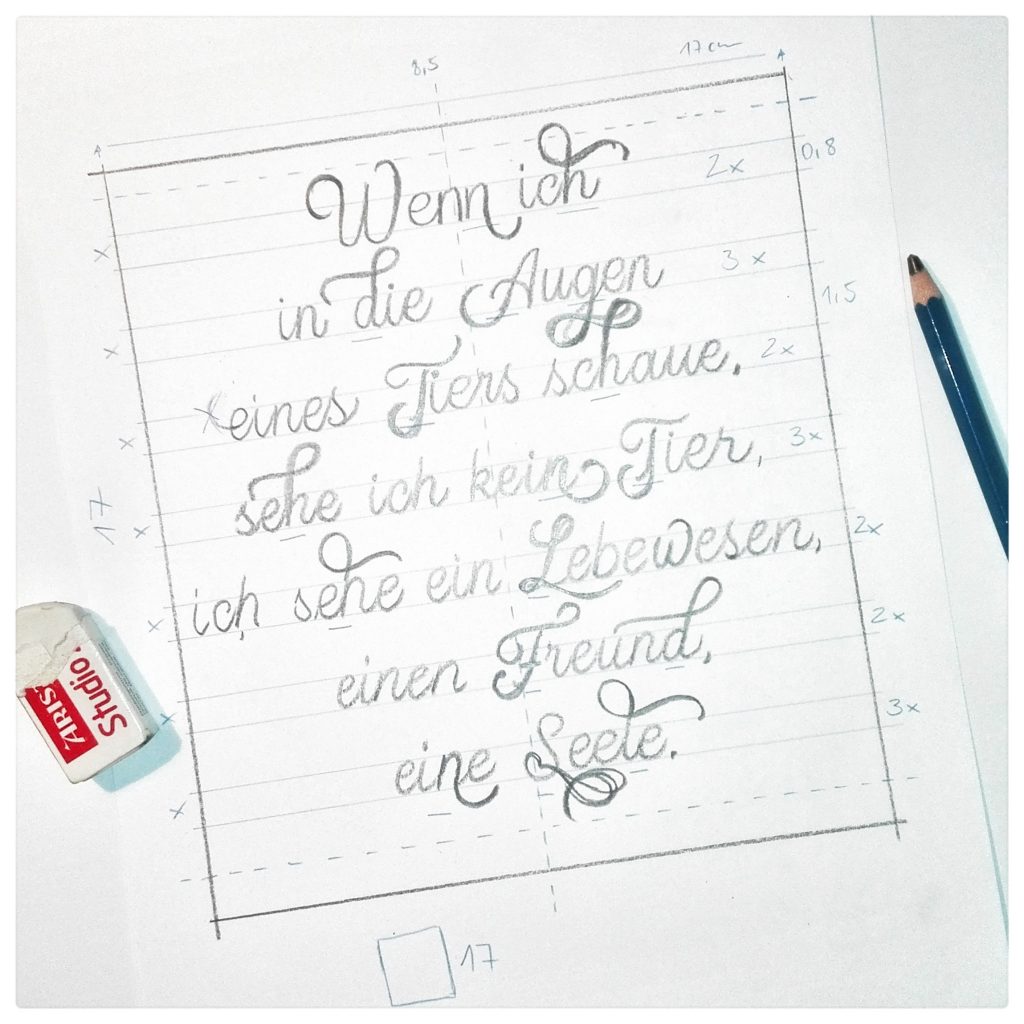 8,5
17 cm
0,8
2x
Wenn ich
in die Augen
3x
1,5
eines Tiers schaue,
2x
sehe ich kein Tier,
3x
17
ich sehe ein Lebewesen,
2x
einen Freund,
2x
eine Seele.
3x
ARIS
Studio
17